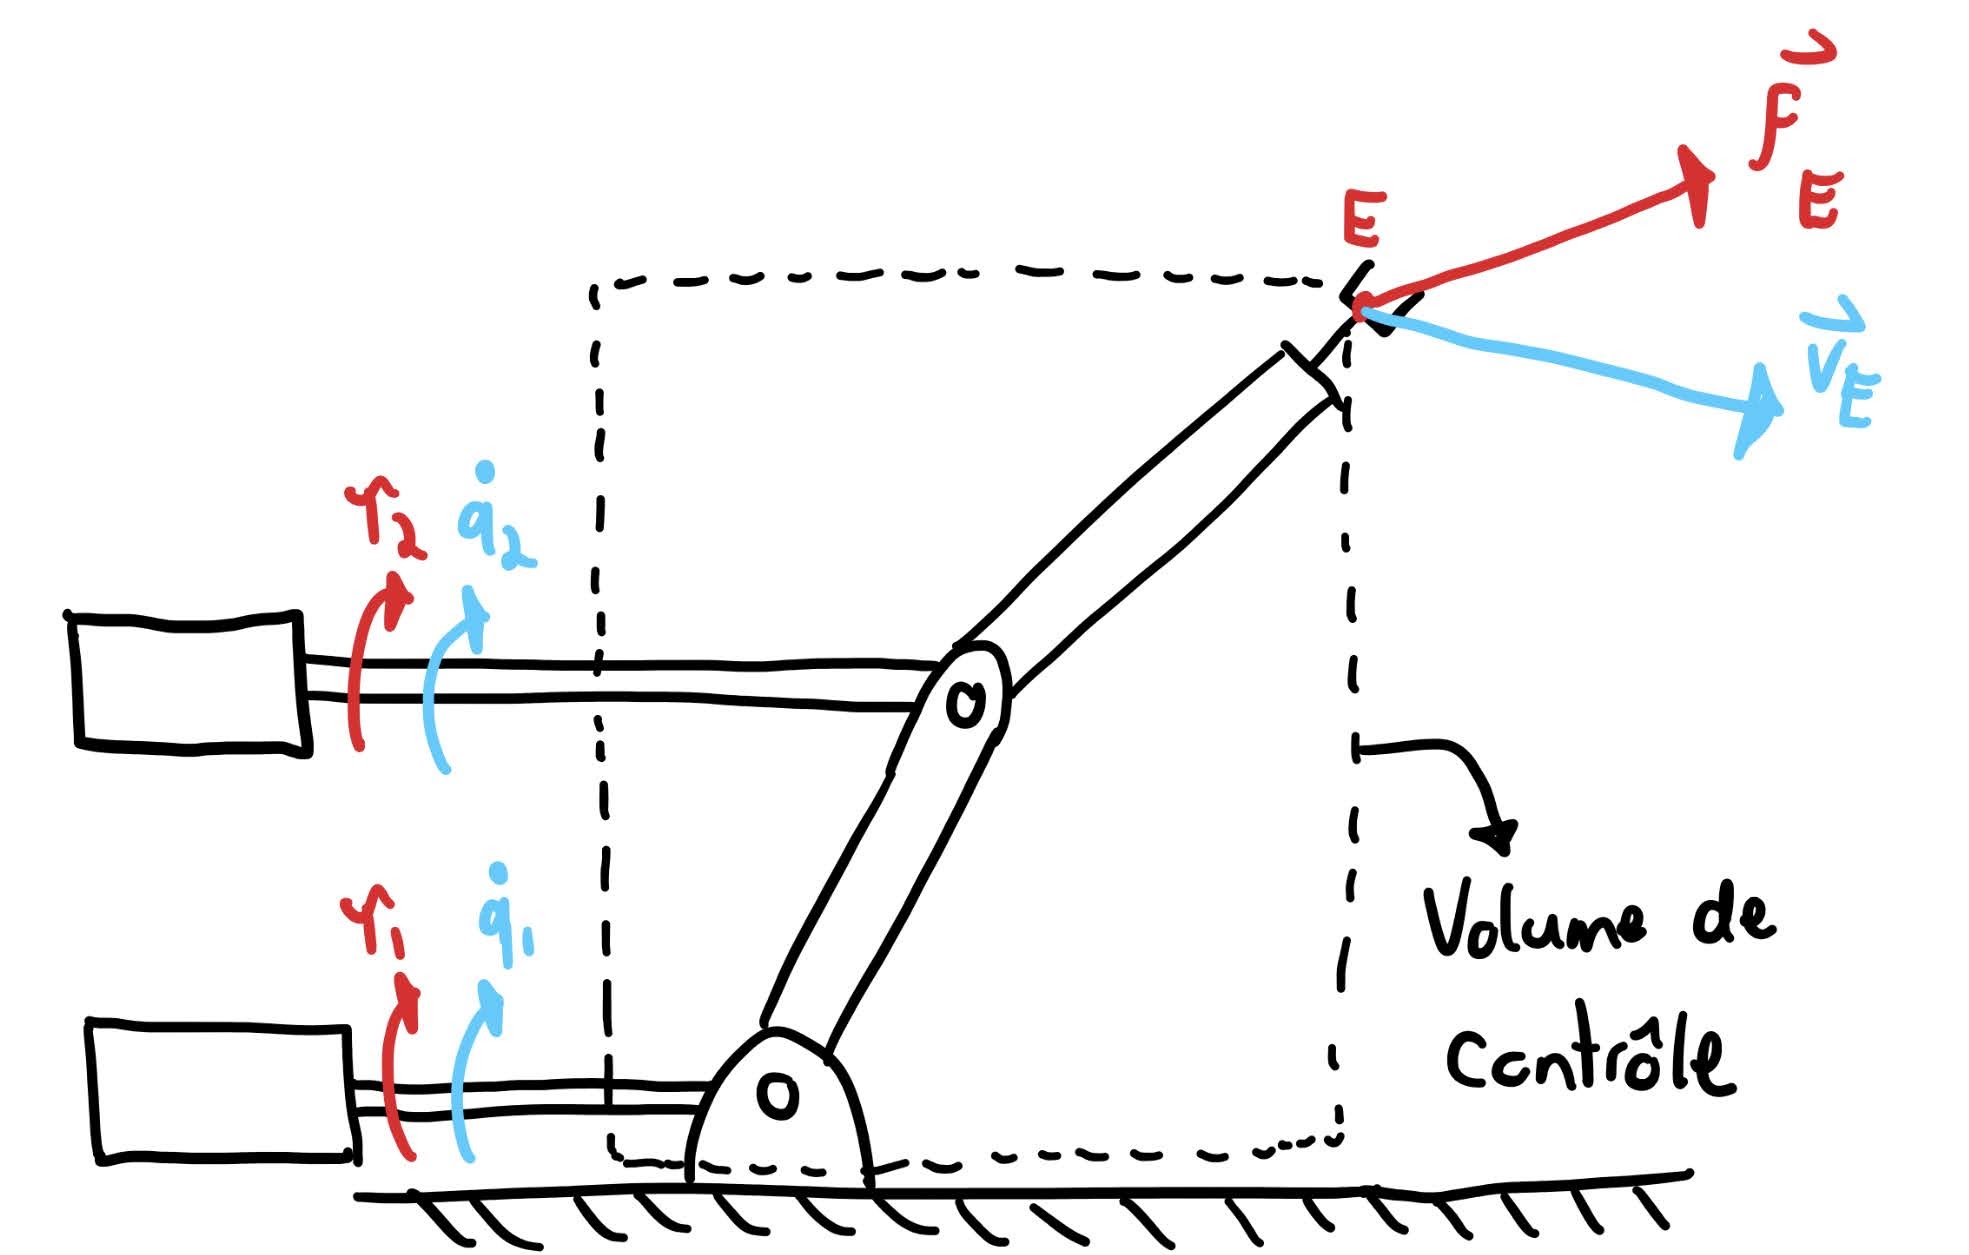 f⃗_E
E
v⃗_E
τ₂ q̇₂
τ₁ q̇₁
Volume de
Contrôle